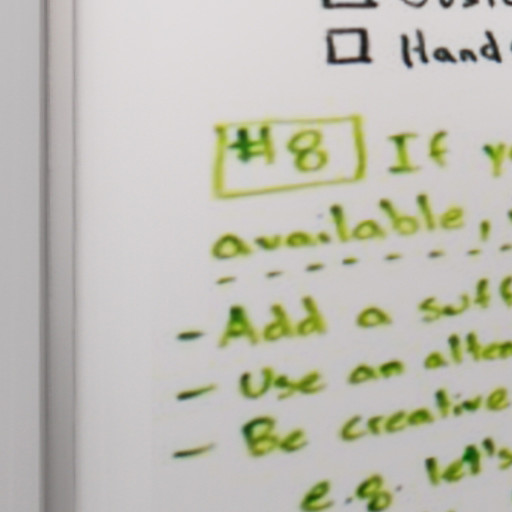 Hand
#8 If
available,
- Add a suff
- Use an alter
- Be creative
e.g. let's